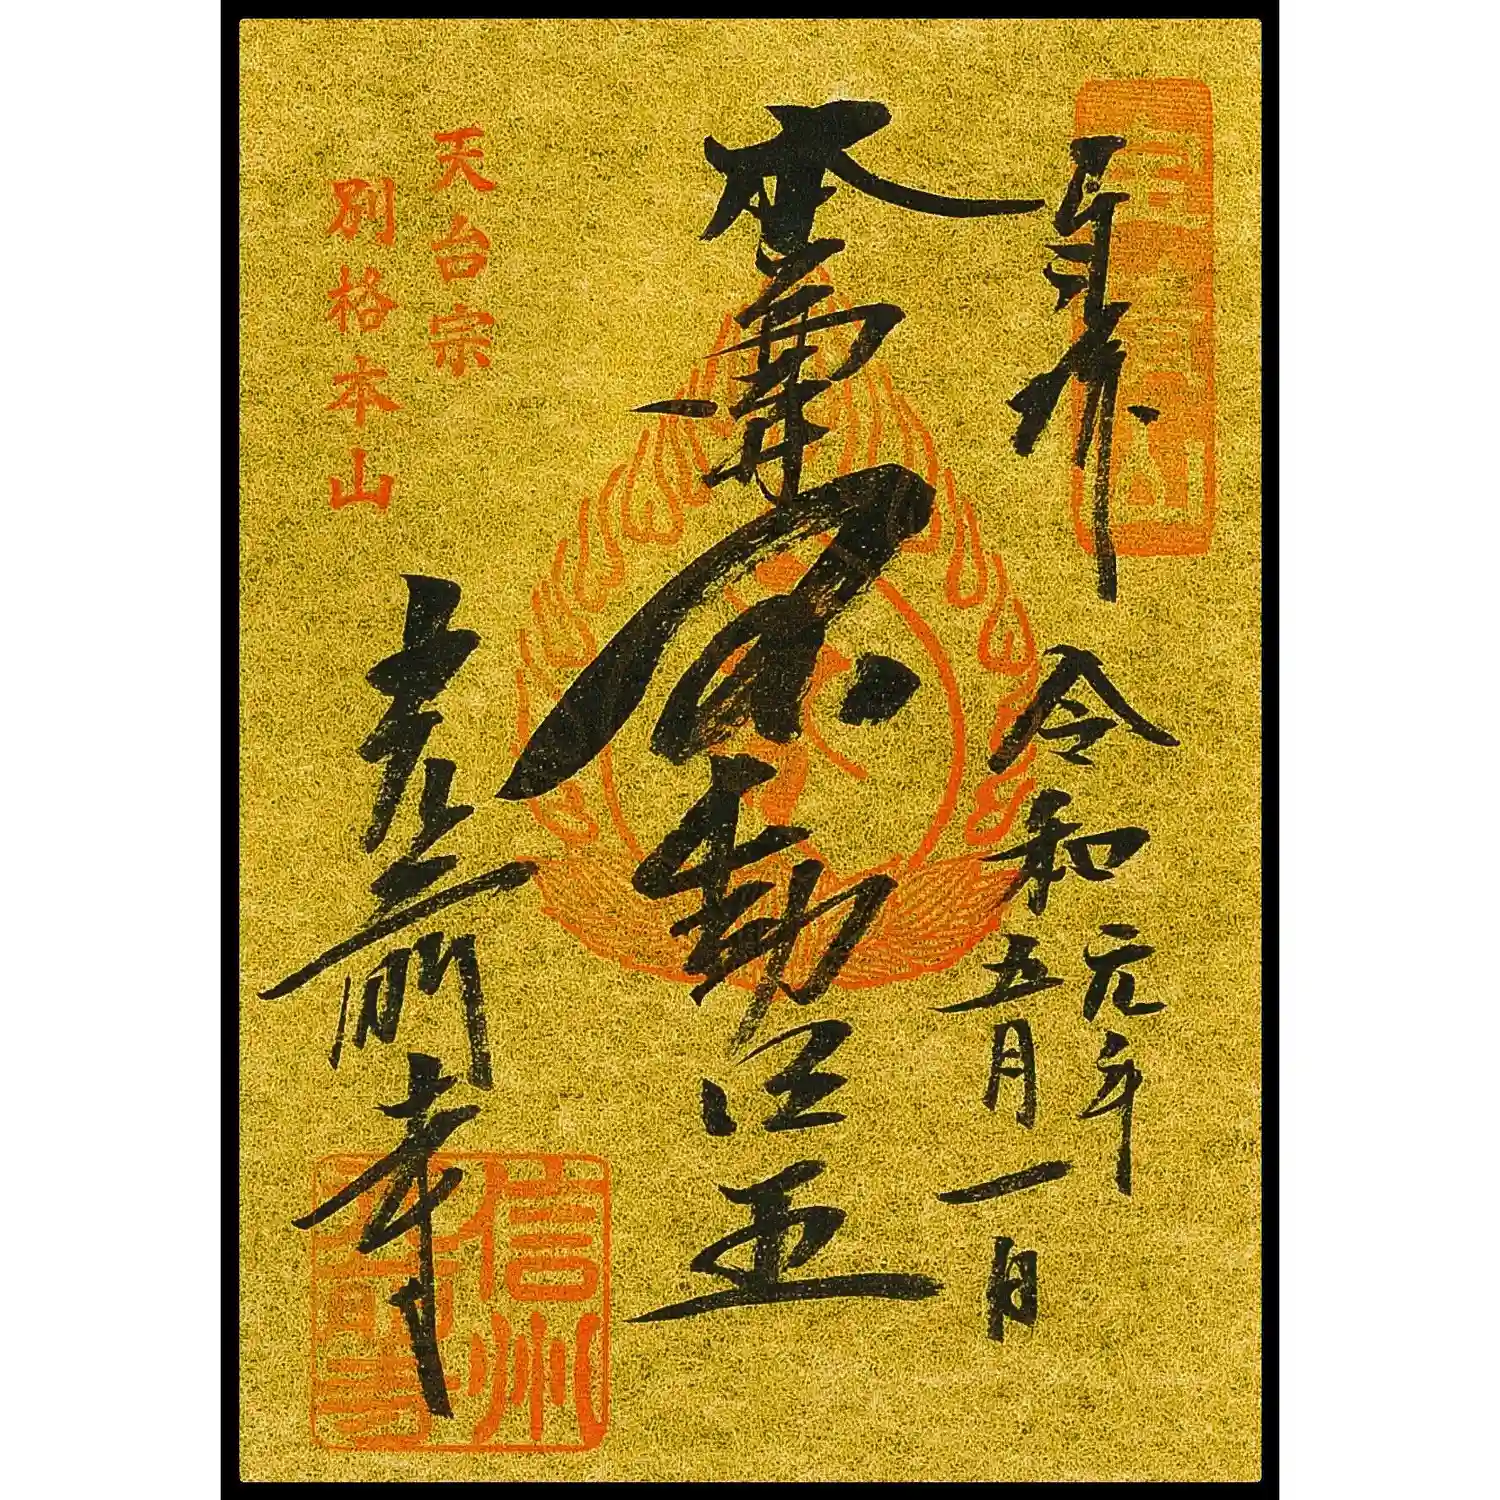 奉拝
令和元年
五月一日
本尊不動明王
天台宗
別格本山
光前寺
信州